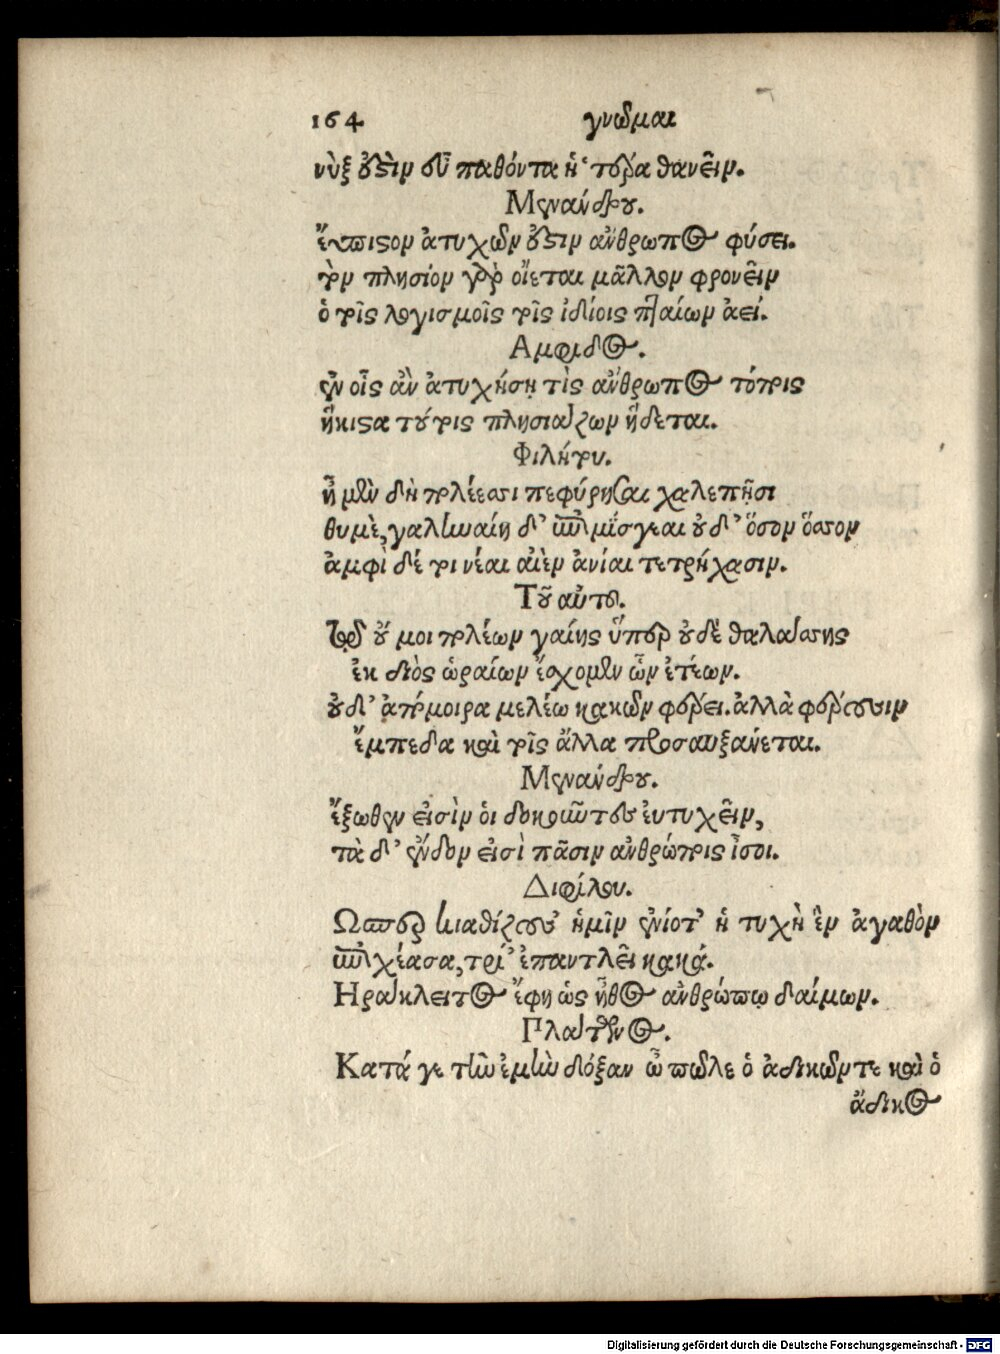 164 γνῶμαι
νὺξ οὐδὲν εὖ παθόντα ἡμέρα θανεῖν.
Μενάνδρου.
ἄπιστον ἀτυχῶν ἐστιν ἄνθρωπος φύσει.
τὸν πλησίον γὰρ οἴεται μᾶλλον φρονεῖν
ὁ τοῖς λογισμοῖς τοῖς ἰδίοις πταίων ἀεί.
Αμφιδος.
ἐν οἷς ἂν ἀτυχήσῃ τὶς ἄνθρωπος τόποις
ἥκιστα τούτοις πλησιάζων ἥδεται.
Φιλήτου.
ἦ μὲν δὴ πολέεσσι πεφύρησαι χαλεπῇσι
θυμὲ, γαληναίῃ δ' ἐπιμίσγεαι οὐδ' ὅσον ὅσσον
ἀμφὶ δέ τοι νέαι αἰὲν ἀνίαι τετρήχασιν.
Τοῦ αὐτοῦ.
οὔ μοι πολέων γαίης ὕπερ οὐδὲ θαλάσσης
ἐκ διὸς ὡραίων ἐρχομένων ἐτέων.
οὐδ' ἀπὸ μοῖρα μελέω κακῶν φέρει. ἀλλὰ φέρουσιν
ἔμπεδα καὶ τοῖς ἄλλα προσαυξάνεται.
Μενάνδρου.
ἔξωθεν εἰσὶν οἱ δοκοῦντες ἐυτυχεῖν,
τὰ δ' ἔνδον εἰσὶ πᾶσιν ἀνθρώποις ἴσοι.
Διφίλου.
Ωσπερ κυαθίζουσ' ἡμῖν ἐνίοτ' ἡ τυχὴ ἓν ἀγαθὸν
ἐπιχέασα, τρί' ἐπαντλεῖ κακά.
Ηράκλειτος ἔφη ὡς ἦθος ἀνθρώπῳ δαίμων.
Πλάτωνος.
Κατά γε τὴν ἐμὴν δόξαν ὦ πῶλε ὁ ἀδικῶν τε καὶ ὁ
ἄδικος
Digitalisierung gefördert durch die Deutsche Forschungsgemeinschaft - DFG